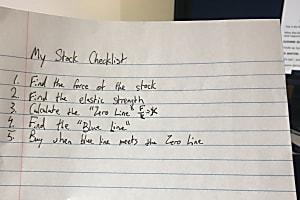 My Stock Checklist
1. Find the force of the stock
2. Find the elastic strength
3. Calculate the "Zero Line"
4. Find the "Blue Line"
5. Buy when blue line meets the Zero Line